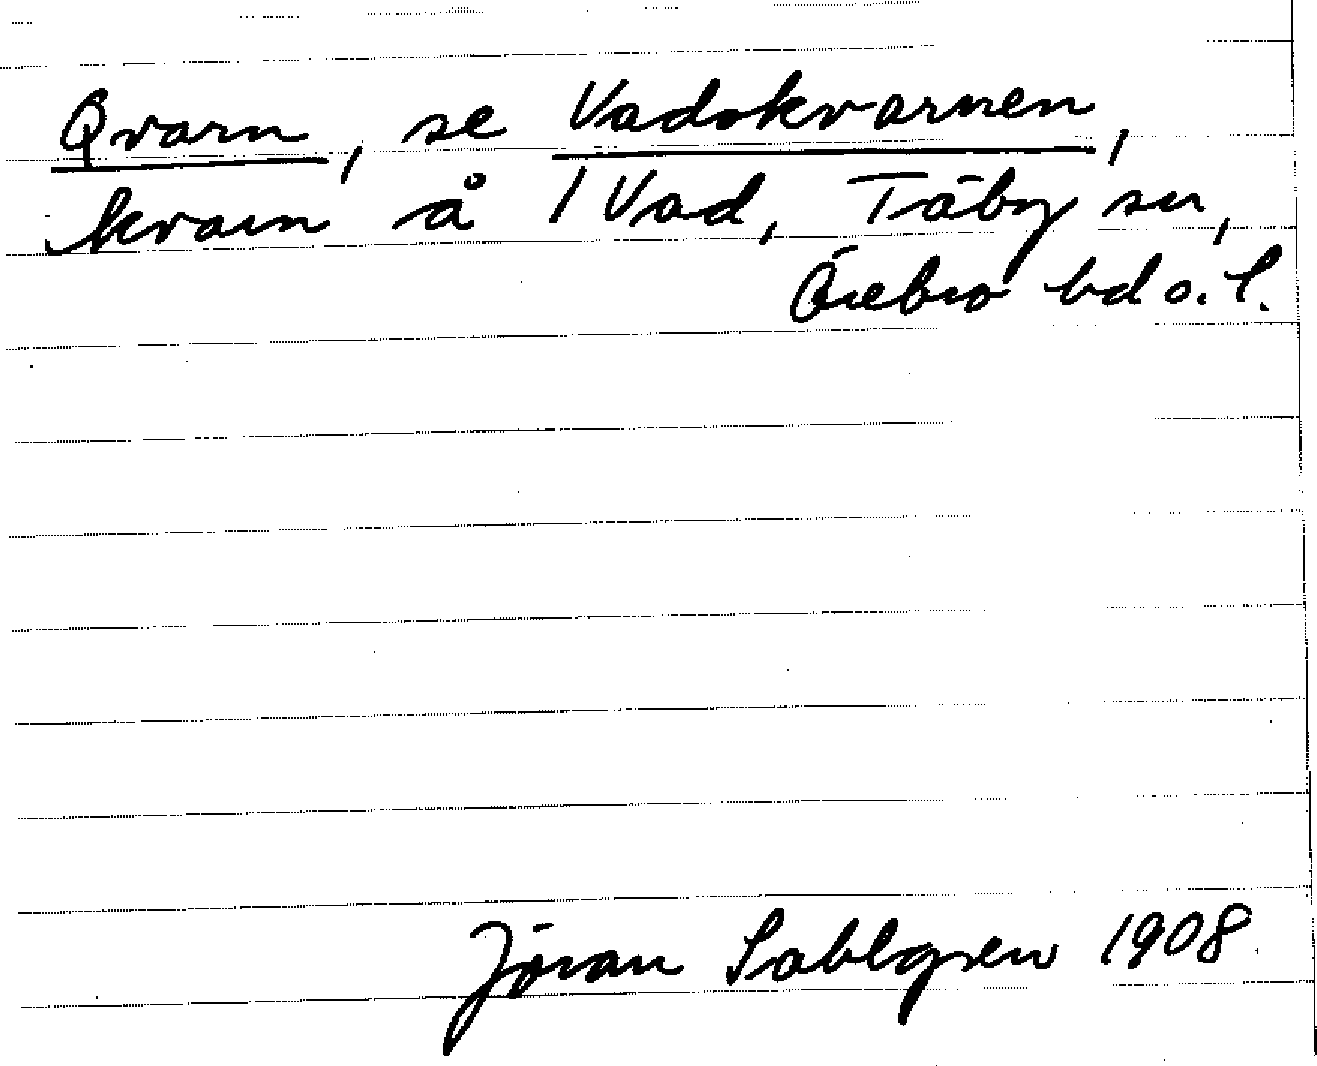 Qvarn, se Vadskvarnen,
kvarn å 1 Vad, Täby sn,
Örebro hd o. l.
Jöran Sahlgren 1908